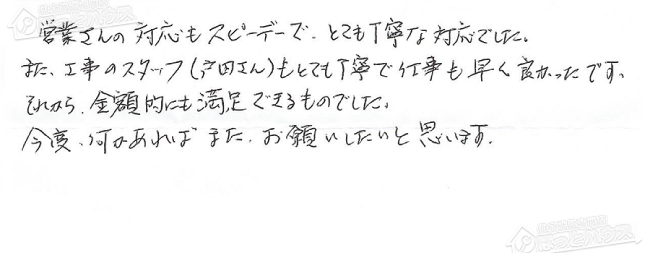 営業さんの対応もスピーデーで、とても丁寧な対応でした。
また、工事のスタッフ(戸田さん)もとても丁寧で仕事も早く良かったです。
それから、金額的にも満足できるものでした。
今度、何かあればまた、お願いしたいと思います。